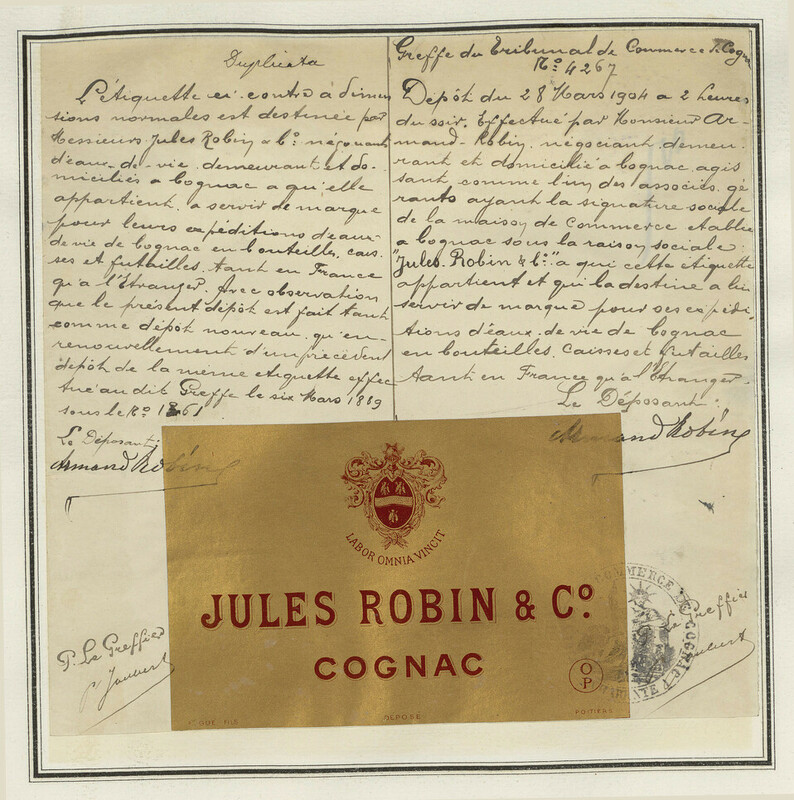 Duplicata
L'étiquette ci-contre à dimen
sions normales est destinée par
Messieurs Jules Robin & Cº: négociants
d'eaux-de-vie. demeurant et do-
miciliés a Cognac a qu'elle
appartient. a servir de marque
pour leurs expéditions d'eaux-
de-vie de Cognac en bouteilles, cais-
ses et futailles. tant en France
qu'a l'Etranger. Avec observation
que le présent dépôt est fait tant
comme dépôt nouveau qu'en-
renouvellement d'un précédent
dépôt de la même etiquette effec
tué au dit Greffe le six Mars 1889
sous le Nº
Le Déposant:
Armand Robin
P. Le Greffier
P Joubert
Greffe du Tribunal de Commerce d. Cogn
Nº 4267
Dépôt du 28 Mars 1904 a 2 heures
du soir. Effectué par Monsieur Ar-
mand-Robin. négociant. demeu-
rant et domicilié a Cognac agis
sant comme l'un des associés. gé
rants ayant la signature sociale
de la maison de Commerce etablie
a Cognac sous la raison sociale:
"Jules. Robin & Cº:" a qui cette étiquette
appartient et qui la destine a lui
servir de marque pour ses expédi-
tions d'eaux. de vie de Cognac
en bouteilles. Caisses et futailles
tant en France qu'a l'Etranger-
Le Déposant:
Armand Robin
LABOR OMNIA VINCIT
JULES ROBIN & Cº
COGNAC
OP
DÉPOSÉ
POITIERS
COMMERCE DE COGNAC
P. Le Greffier
Joubert